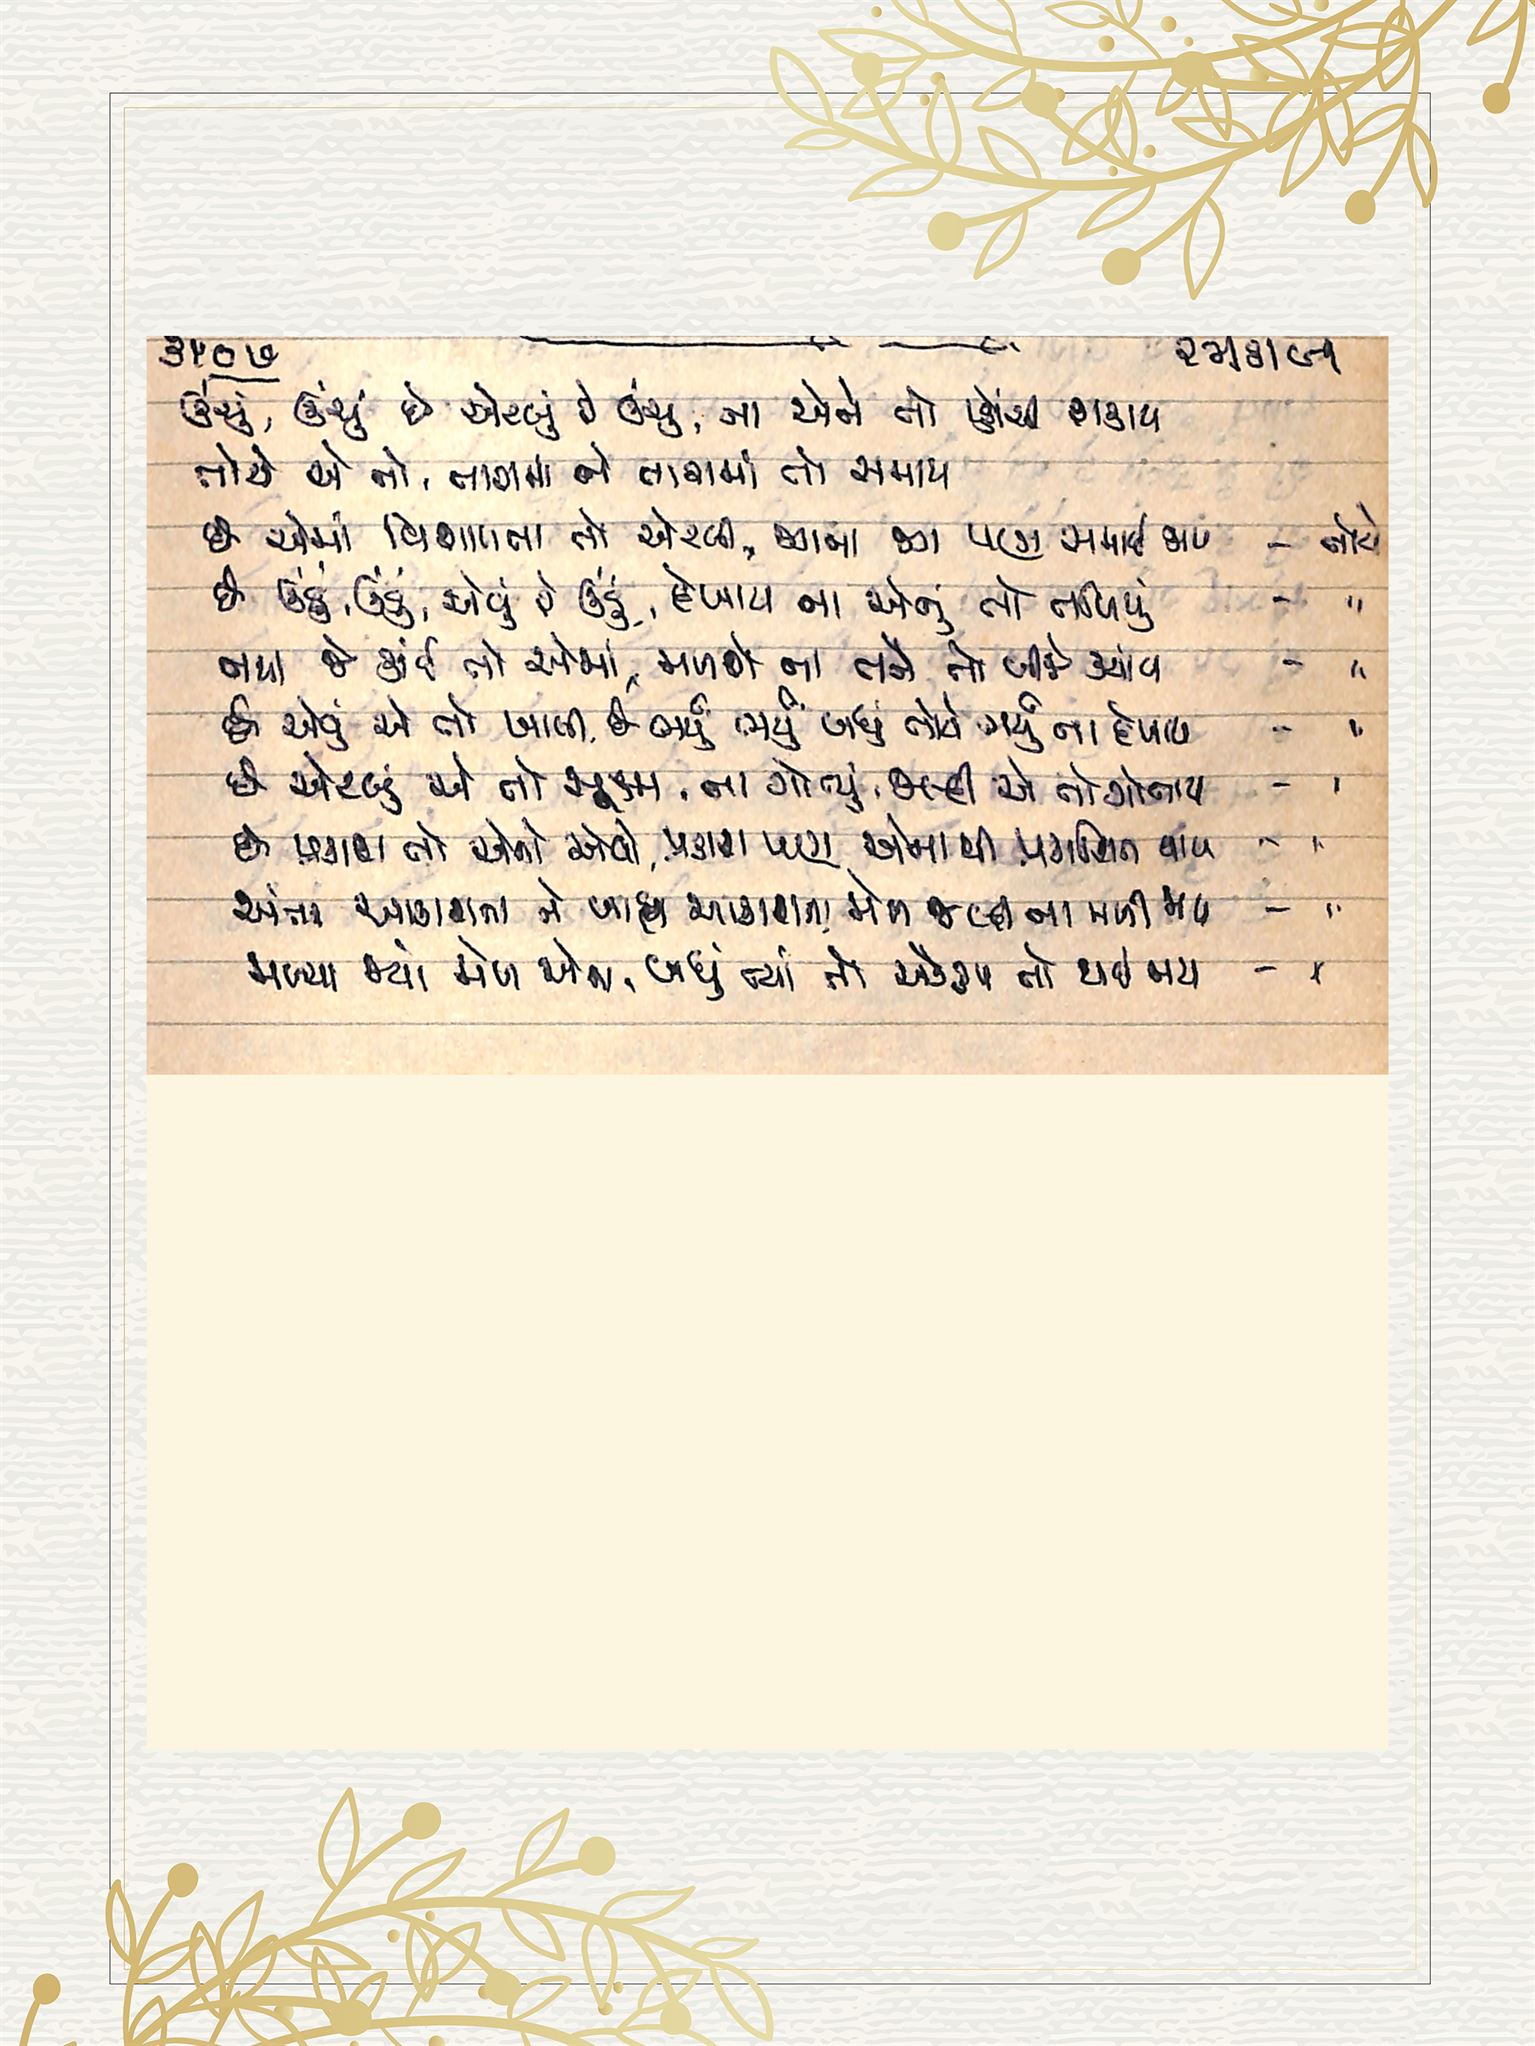 ૩૫૦૭
ઊંચું, ઊંચું છે એટલું રે ઊંચુ, ના એને તો પ્હોંચી શકાય
તોયે એ તો, તારામાં ને તારામાં તો સમાય
છે એમાં વિશાળતા તો એટલી, પણ સમાઈ જાય - તોયે
છે ઊંડું, ઊંડું, એવું રે ઊંડું, દેખાય ના એનું તો તળિયું - "
નથી જે કાંઈ તો એમાં, મળશે ના તને તો બીજે ક્યાંય - "
છે એવું એ તો ખાલી, છે ભર્યું ભર્યું બધું તોયે ભર્યું ના દેખાય - "
છે એટલું એ તો સૂક્ષ્મ, ના ગોત્યું, જલ્દી એ તો ગોતાય - "
છે પ્રકાશ તો એનો એવો, પ્રકાશ પણ એમાંથી પ્રકાશિત થાય - "
અંતર આકાશના ને બાહ્ય આકાશના મેળ જલ્દી ના મળી જાય - "
મળ્યા જ્યાં મેળ એના, બધું ત્યાં તો એકરૂપ તો થઈ જાય - "